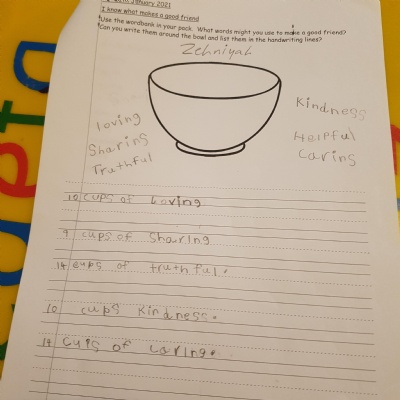 January 2021
I know what makes a good friend
Use the wordbank in your pack. What words might you use to make a good friend?
Can you write them around the bowl and list them in the handwriting lines?
Zehniyah
loving
Sharing
Truthful
Kindness
Helpful
Caring
10 cups of Loving
9 cups of Sharing
14 cups of truthful.
10 cups Kindness.
14 cups of caring.